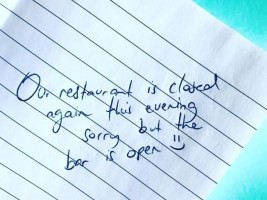 Our restaurant is closed
again this evening
sorry but the
bar is open :)